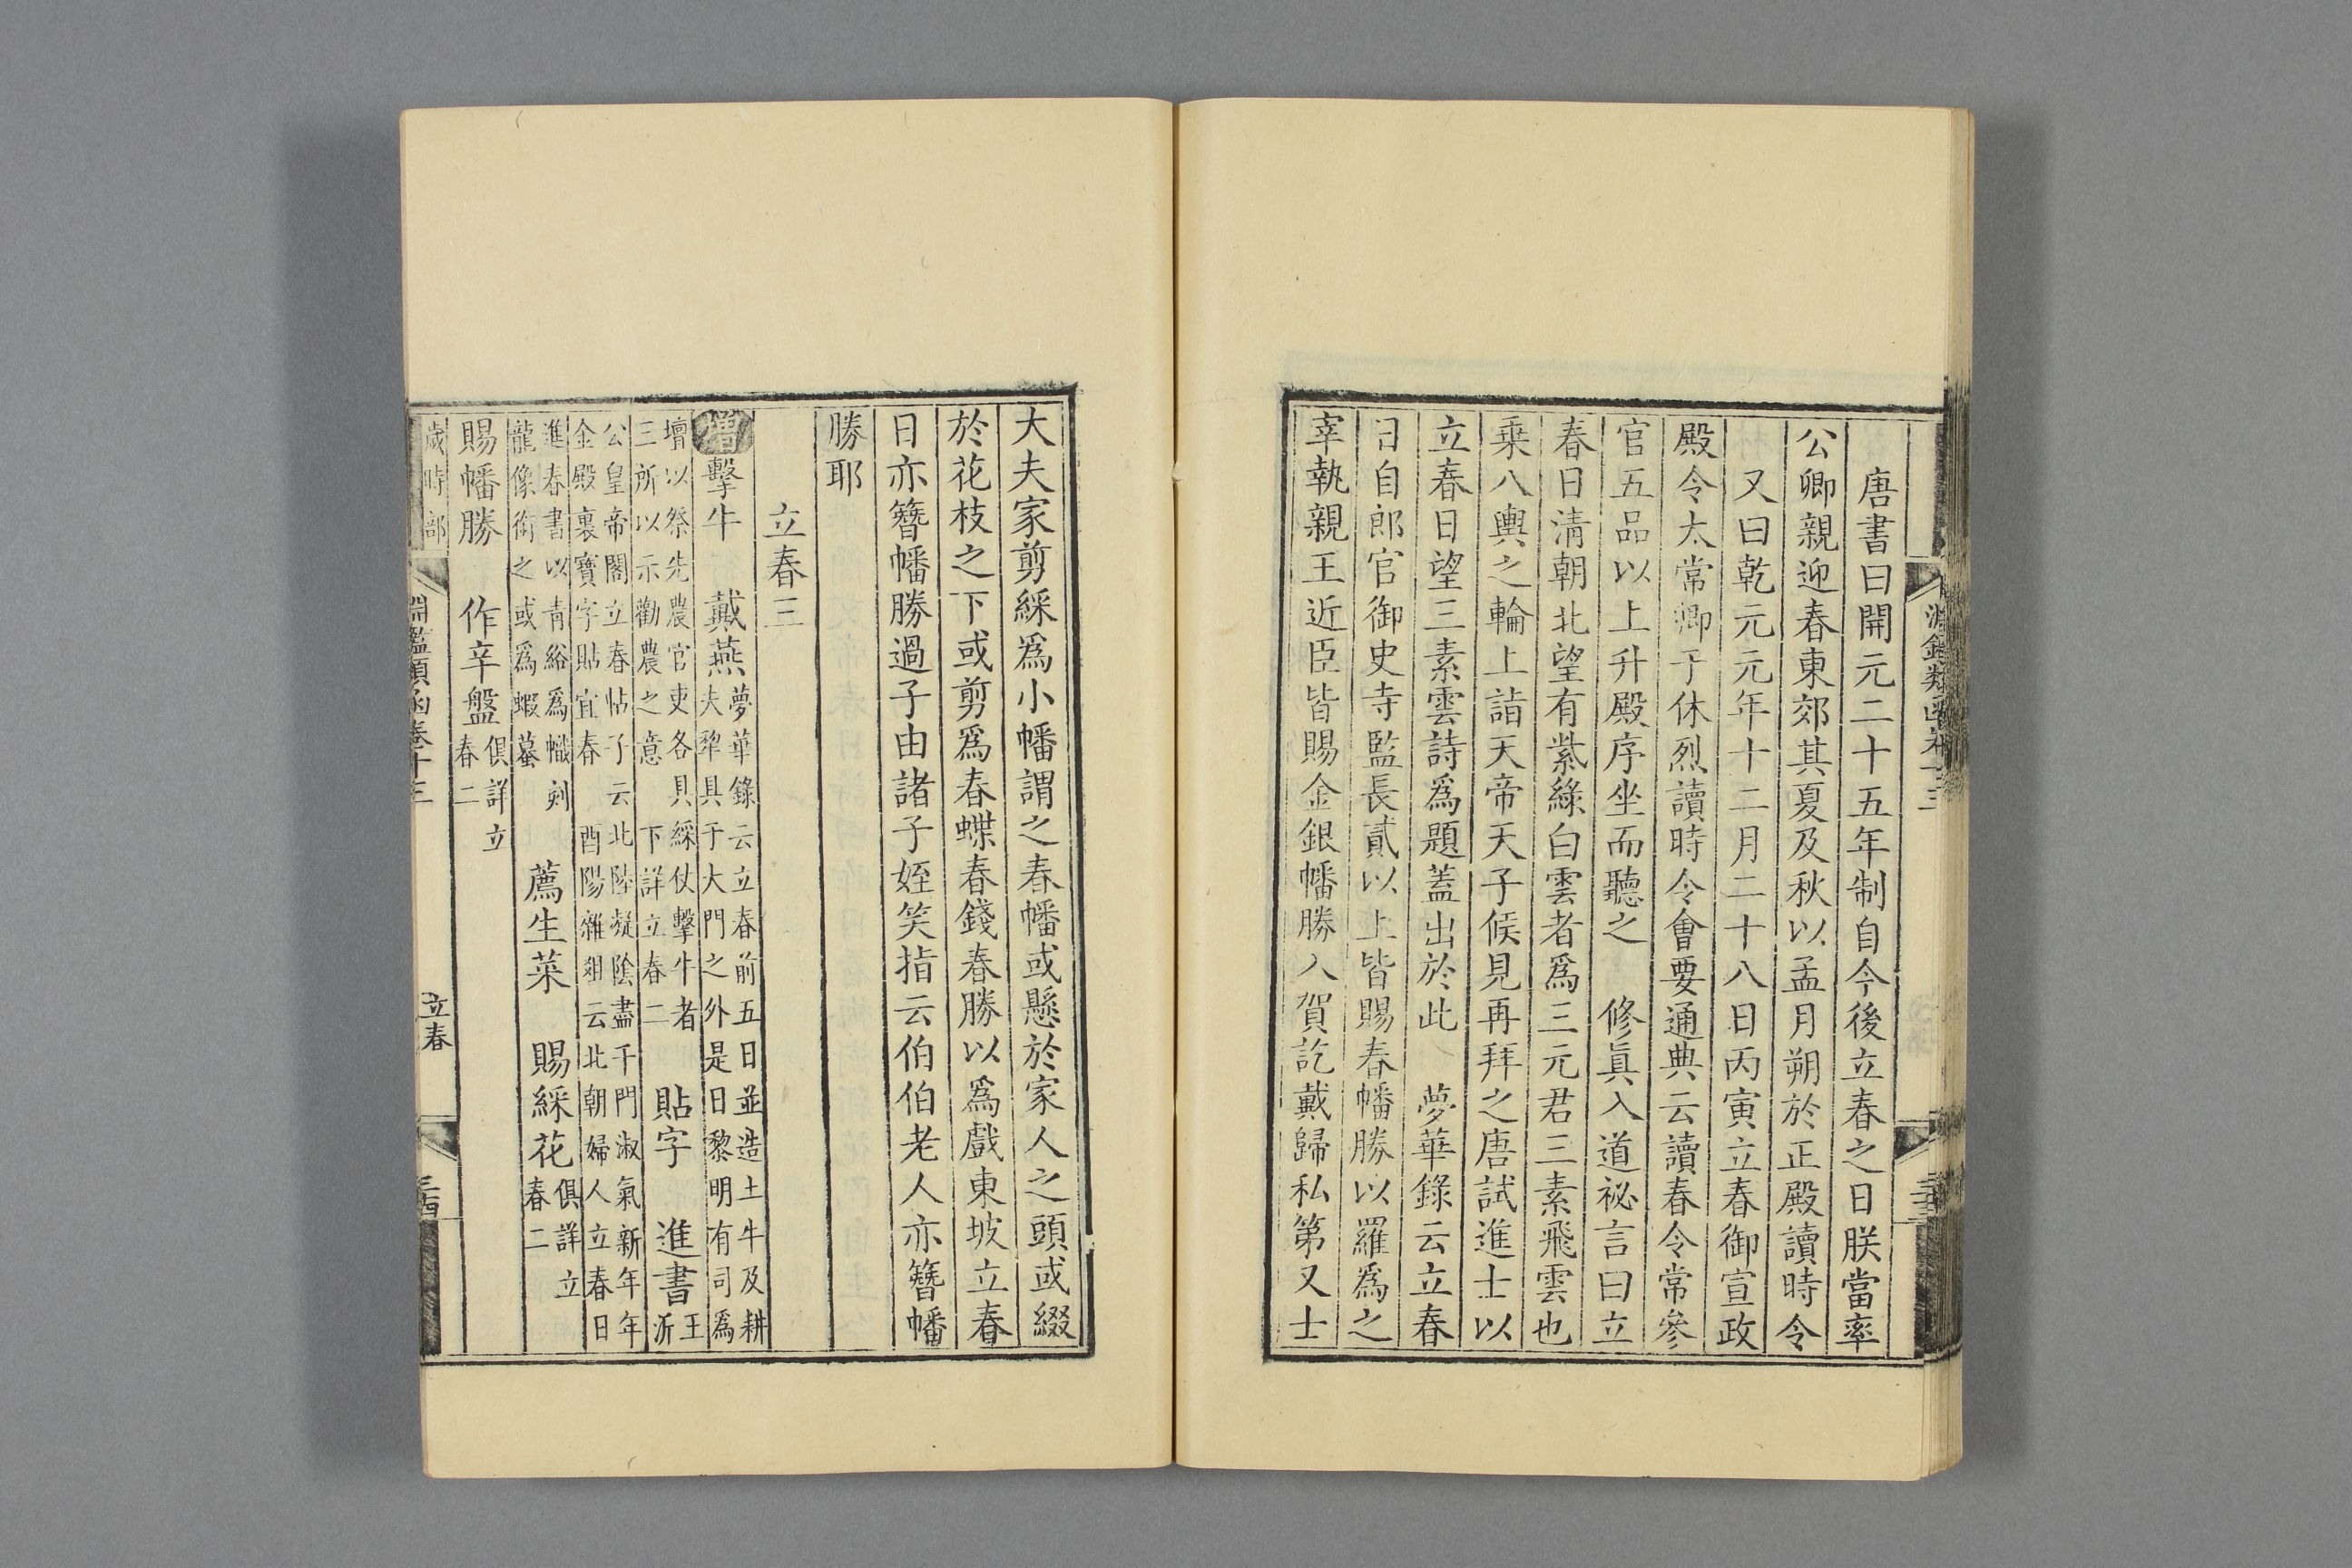 唐書曰開元二十五年制自今後立春之日朕當率
公卿親迎春東郊其夏及秋以孟月朔於正殿讀時令
又曰乾元元年十二月二十八日丙寅立春御宣政
殿令太常卿于休烈讀時令會要通典云讀春令常參
官五品以上升殿序坐而聽之　修眞入道祕言曰立
春日淸朝北望有紫綠白雲者爲三元君三素飛雲也
乗八輿之輪上詣天帝天子候見再拜之唐試進士以
立春日望三素雲詩爲題蓋出於此　夢華錄云立春
日自郎官御史寺監長貳以上皆賜春幡勝以羅爲之
宰執親王近臣皆賜金銀幡勝入賀訖戴歸私第又士
大夫家剪綵爲小幡謂之春幡或懸於家人之頭或綴
於花枝之下或剪爲春蝶春錢春勝以爲戲東坡立春
日亦簪幡勝過子由諸子姪笑指云伯伯老人亦簪幡
勝耶
立春三
增擊牛　戴燕夢華錄云立春前五日並造土牛及耕
夫犂具于大門之外是日黎明有司爲
壇以祭先農官吏各具綵仗擊牛者
三所以示勸農之意　下詳立春二　貼字　進書王沂
公皇帝閣立春帖子云北陸凝陰盡千門淑氣新年年
金殿裏寶字貼宜春　酉陽雜俎云北朝婦人立春日
進春書以靑繒爲幟刻
龍像銜之或爲蝦蟇　薦生菜　賜綵花俱詳立春二
賜幡勝　作辛盤俱詳立春二
歲時部
淵鑑類函卷十三
立春